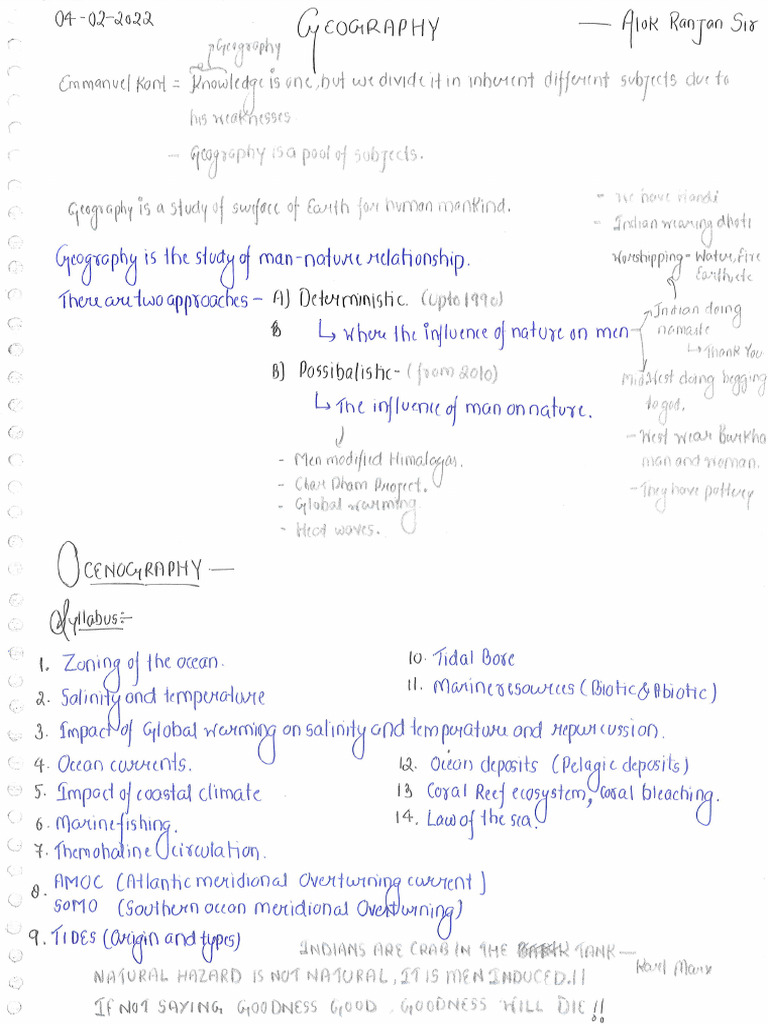 04-02-2022 GEOGRAPHY — Alok Ranjan Sir
Geography
Emmanuel Kant = Knowledge is one, but we divide it in inherent different subjects due to
his weaknesses.
- Geography is a pool of subjects.
Geography is a study of surface of Earth for human mankind.
Geography is the study of man-nature relationship.
There are two approaches - A) Deterministic. (upto 1990)
↳ where the influence of nature on men
B) Possibalistic - (from 2010)
↳ The influence of man on nature.
- Men modified Himalayas.
- Char Dham Project.
- Global warming
- Heat waves.
- we have nandi
- Indian wearing dhoti
Worshipping - Water, Fire
Earth, etc
Indian doing
namaste
↳ Thank You
Mid West doing begging
to god.
- West wear Burkha
man and woman.
- They have pottery
OCENOGRAPHY —
Syllabus:-
1. Zoning of the ocean.
2. Salinity and temperature
3. Impact of Global warming on salinity and temperature and repurcussion.
4. Ocean currents.
5. Impact of coastal climate
6. Marine fishing.
7. Themohaline circulation.
8. AMOC (Atlantic meridional Overturning current)
SOMO (Southern ocean meridional Overturning)
9. TIDES (Origin and types)
10. Tidal Bore
11. Marine resources (Biotic & Abiotic)
12. Ocean deposits (Pelagic deposits)
13 Coral Reef ecosystem, coral bleaching.
14. Law of the sea.
INDIANS ARE CRAB IN THE TANK — Karl Marx
NATURAL HAZARD IS NOT NATURAL, IT IS MEN INDUCED.!!
IF NOT SAYING GOODNESS GOOD, GOODNESS WILL DIE!!